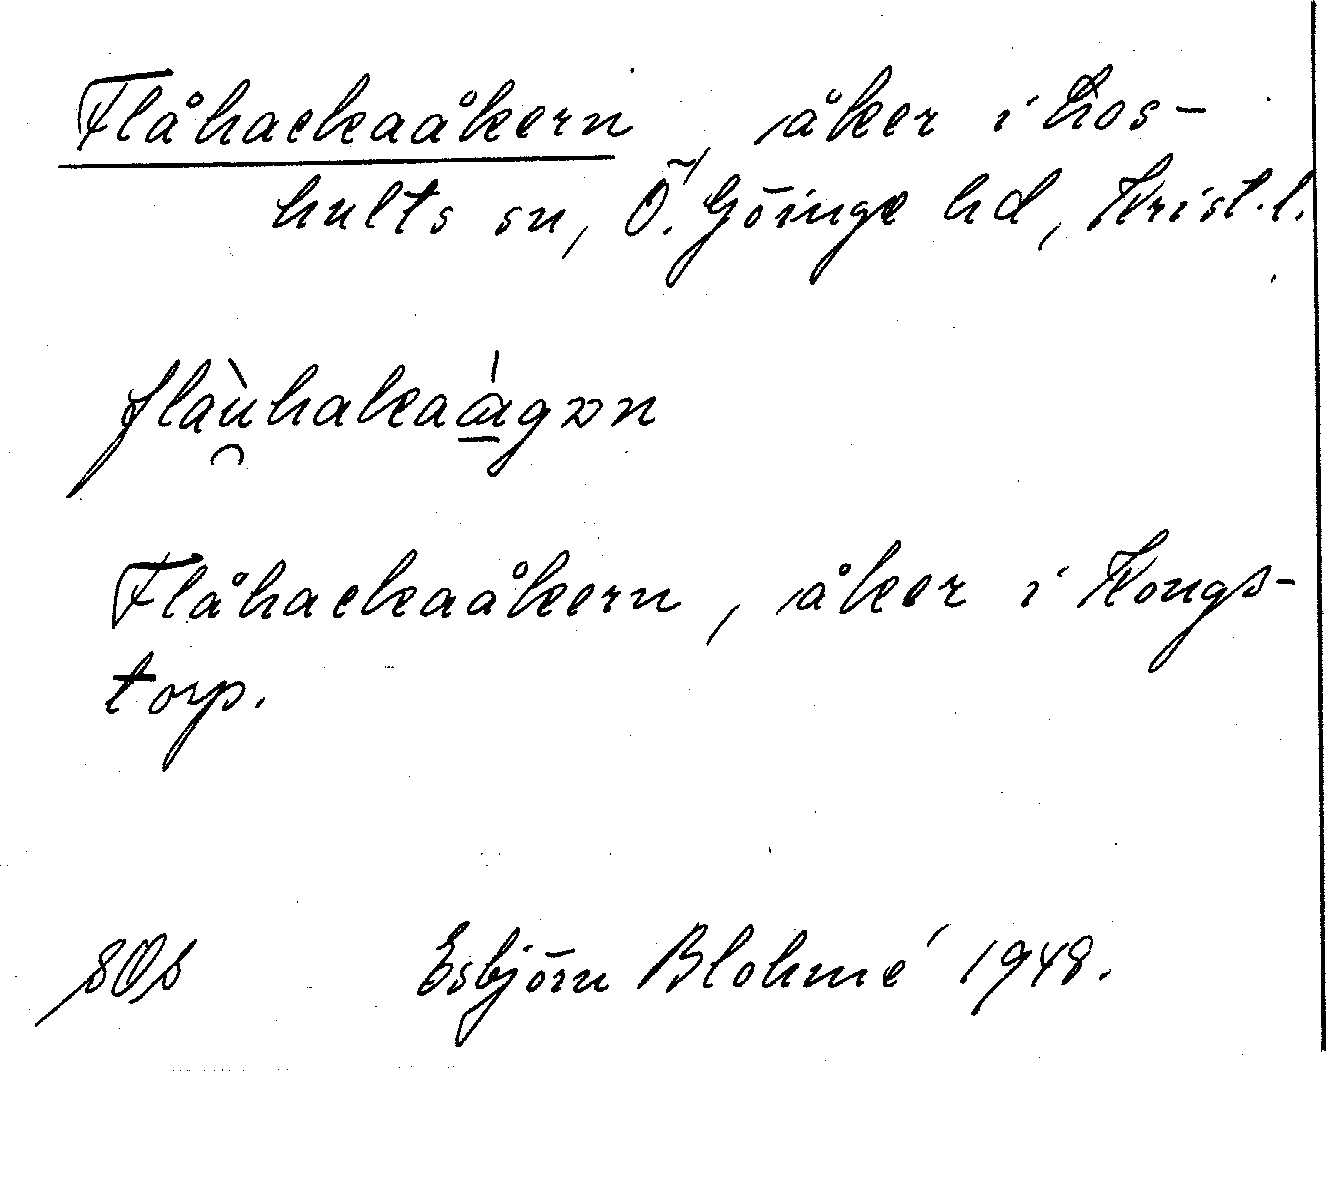 Flåhackaåkern, åker i Los-
hults sn, Ö. Göinge hd, Krist. l.
Flåhackaåkern, åker i Kongs-
torp.
Esbjörn Blohmé 1948.